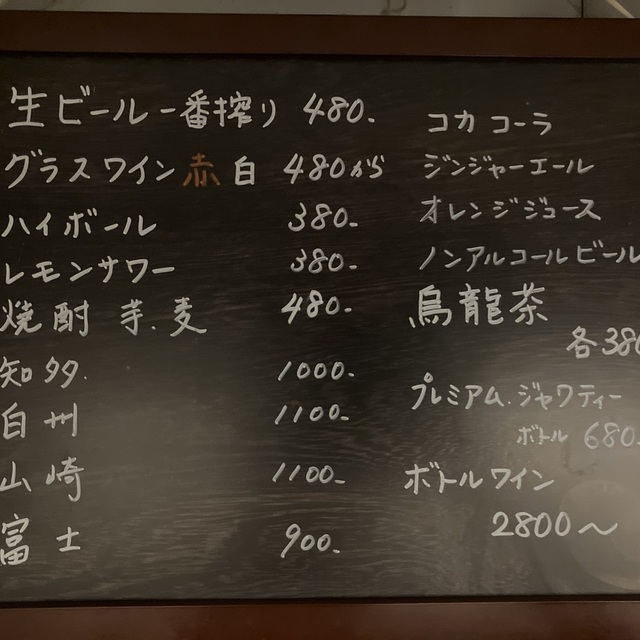 生ビール一番搾り 480-
グラスワイン 赤 白 480から
ハイボール 380-
レモンサワー 380-
焼酎 芋.麦 480-
知多. 1000-
白州 1100-
山崎 1100-
富士 900-
コカコーラ
ジンジャーエール
オレンジジュース
ノンアルコールビール
烏龍茶
各380
プレミアム.ジャワティー
ボトル 680-
ボトルワイン
2800〜